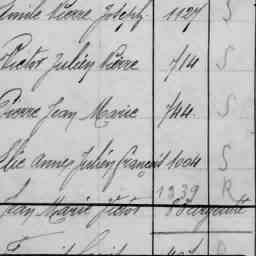 Emile Pierre Joseph 1127 S
Victor Julien Pierre 714 S
Pierre Jean Marie 744 S
Elie Annes Julien François 1004 S
1239 R
Jean Marie Victor